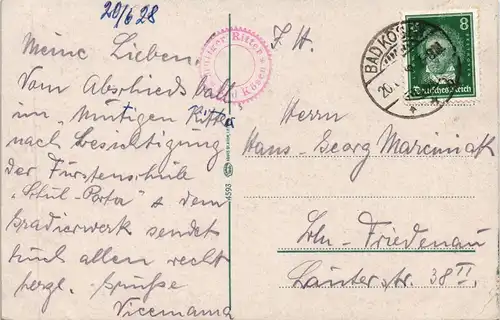 20/6 28
Meine Lieben.
Vom Abschiedsball
im "Mutigen Ritter"
nach Besichtigung
der Fürstenschule
"Schul-Porta" & dem
Gradierwerk sendet
Euch allen recht
herzl. Grüsse
Vicemama
Ritter
Bad Kösen
4593
BAD KÖSEN
20.
8
Deutsches Reich
Herrn
Hans-Georg Marciniak
Bln-Friedenau
Lauter str. 38 II.